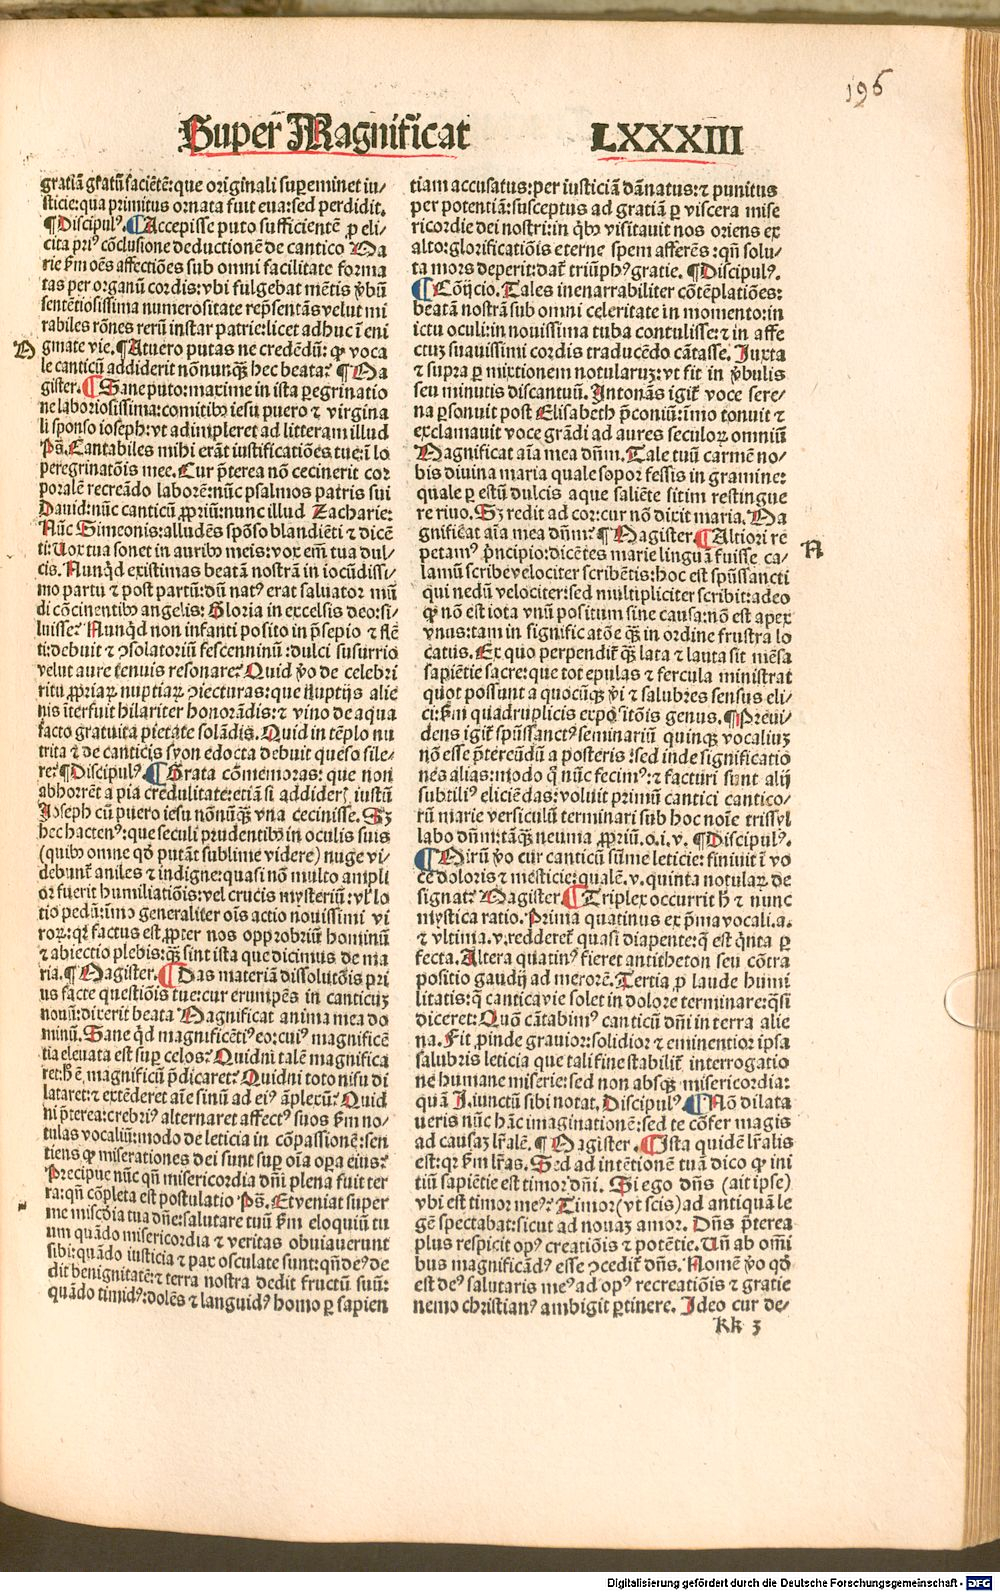 196
Super Magnificat LXXXIII
gratiã gratũ faciẽtẽ: que originali supeminet iu/
sticie: qua primitus ornata fuit eua: sed perdidit.
¶ Discipulꝰ. ¶ Accepisse puto sufficientẽ ꝓ eli/
cita priꝰ cõclusione deductionẽ de cantico Ma
rie ẜm oẽs affectiões sub omni facilitate forma
tas per organũ cordis: vbi fulgebat mẽtis ꝟbũ
sentẽtiosissima numerositate rep̃sentãs velut mi
rabiles rõnes rerũ instar patrie: licet adhuc ĩ eni
gmate vie. ¶ At vero putas ne credẽdũ: ꝙ voca
le canticũ addiderit nõnunꝙ̃ hec beata? ¶ Ma
gister. ¶ Sane puto: maxime in ista pegrinatio
ne laboriosissima: comitibꝰ iesu puero ⁊ virgina
li sponso ioseph: vt adimpleret ad litteram illud
Ps̃. Cantabiles mihi erãt iustificatiões tue: ĩ lo
peregrinatõis mee. Cur p̃terea nõ cecinerit cor
poralẽ recreãdo laborẽ: nũc psalmos patris sui
Dauid: nũc canticũ ꝓpriũ: nunc illud Zacharie:
Nũc Simeonis: alludẽs spõso blandiẽti ⁊ dicẽ
ti: Uox tua sonet in auribꝰ meis: vox em̃ tua dul/
cis. Nunqd existimas beatã nostrã in iocũdissi/
mo partu ⁊ post partũ: dũ natꝰ erat saluator mũ
di cõcinentibꝰ angelis: Gloria in excelsis deo: si/
luisse? Nunqd non infanti posito in p̃sepio ⁊ flẽ
ti: debuit ⁊ ꝯsolatoriũ fescenninũ: dulci susurrio
velut aure tenuis resonare? Quid ꝟo de celebri
ritu ꝓpriaꝝ nuptiaꝝ ꝯiecturas: que nuptijs alie
nis ĩterfuit hilariter honorãdis: ⁊ vino de aqua
facto gratuita pietate solãdis. Quid in tẽplo nu
trita ⁊ de canticis syon edocta debuit queso sile/
re? ¶ Discipulꝰ ¶ Grata cõmemoras: que non
abhorrẽt a pia credulitate: etiã si addider̃ iustũ
Joseph cũ puero iesu nõnũꝙ̃ vna cecinisse. Sꝫ
hec hactenꝰ: que seculi prudentibꝰ in oculis suis
(quibꝰ omne qđ putãt sublime videre) nuge vi/
debunt̃ aniles ⁊ indigne: quasi nõ multo ampli
or fuerit humiliatiõis: vel crucis mysteriũ: vl̃ lo
tio pedũ: ĩmo generaliter oĩs actio nouissimi vi
roꝝ: qꝛ factus est ꝓpter nos opprobriũ hominũ
⁊ abiectio plebis: ꝙ̃ sint ista que dicimus de ma
ria. ¶ Magister. ¶ Das materiã dissolutõis pri
us facte questiõis tue: cur erumpẽs in canticuꝫ
nouũ: dixerit beata Magnificat anima mea do
minũ. Sane qd magnificẽtiꝰ eo: cuiꝰ magnificẽ
tia eleuata est suꝑ celos? Quidni talẽ magnifica
ret: h̃ ẽ magnificũ p̃dicaret? Quidni toto nisu di
lataret: ⁊ extẽderet aĩe sinũ ad eiꝰ ãplexũ? Quid
ni p̃terea: crebriꝰ alternaret affectꝰ suos ẜm no/
tulas vocaliũ: modo de leticia in cõpassionẽ: sen
tiens ꝙ miserationes dei sunt suꝑ oĩa oꝑa eius?
Precipue nũc qñ misericordia dñi plena fuit ter
ra: qñ cõpleta est postulatio Ps̃. Et veniat super
me mis̃cdia tua dñe: salutare tuũ ẜm eloquiũ tu
um quãdo misericordia ⁊ veritas obuiauerunt
sibi: quãdo iusticia ⁊ pax osculate sunt: qñ deꝰ de
dit benignitatẽ: ⁊ terra nostra dedit fructũ suũ:
quãdo timidꝰ: dolẽs ⁊ languidꝰ homo ꝑ sapien
tiam accusatus: per iusticiã dãnatus: ⁊ punitus
per potentiã: susceptus ad gratiã ꝑ viscera mise
ricordie dei nostri: in qbꝰ visitauit nos oriens ex
alto: glorificatiõis eterne spem afferẽs: qñ solu/
ta mors deperit: dat̃ triũphꝰ gratie. ¶ Discipulꝰ.
¶ Cõijcio. Tales inenarrabiliter cõtẽplatiões:
beatã nostrã sub omni celeritate in momento: in
ictu oculi: in nouissima tuba contulisse: ⁊ in affe
ctuꝫ suauissimi cordis traducẽdo cãtasse. Juxta
⁊ supra ꝑ mixtionem notularuꝫ: vt fit in ꝟbulis
seu minutis discantuũ. Intonãs igit̃ voce sere/
na ꝑsonuit post Elisabeth p̃coniũ: ĩmo tonuit ⁊
exclamauit voce grãdi ad aures seculoꝝ omniũ
Magnificat aĩa mea dñm. Tale tuũ carmẽ no/
bis diuina maria quale sopor fessis in gramine:
quale ꝑ estũ dulcis aque saliẽte sitim restingue
re riuo. Sꝫ redit ad cor: cur nõ dixit maria. Ma
gnificat aĩa mea dñm? ¶ Magister ¶ Altiori re
petamꝰ p̃ncipio: dicẽtes marie linguã fuisse ca/
lamũ scribe velociter scribẽtis: hoc est sp̃ussancti
qui nedũ velociter: sed multipliciter scribit: adeo
ꝙ nõ est iota vnũ positum sine causa: nõ est apex
vnus: tam in significatõe ꝙ̃ in ordine frustra lo
catus. Ex quo perpendit̃ ꝙ̃ lata ⁊ lauta sit mẽsa
sapiẽtie sacre: que tot epulas ⁊ fercula ministrat
quot possunt a quocũqꝫ ꝟi ⁊ salubres sensus eli/
ci: ẜm quadruplicis expositõis genus. ¶ Preui/
dens igit̃ sp̃ussanctꝰ seminariũ quinqꝫ vocaliuꝫ
nõ esse p̃tereũdũ a posteris: sed inde significatio
nes alias: modo q̃ nũc fecimꝰ: ⁊ facturi sunt alij
subtiliꝰ eliciẽdas: voluit primũ cantici cantico/
rũ marie versiculũ terminari sub hoc noĩe trissyl
labo dñm: tãqꝫ neuma ꝓpriũ. o. i. v. ¶ Discipulꝰ.
¶ Mirũ ꝟo cur canticũ sũme leticie: finiuit ĩ vo
ce doloris ⁊ mesticie: qualẽ. v. quinta notulaꝝ de
signat? Magister ¶ Triplex occurrit h̃ ⁊ nunc
mystica ratio. Prima quatinus ex p̃ma vocali. a.
⁊ vltima. v. redderet̃ quasi diapente: q̃ est qnta ꝑ
fecta. Altera quatinꝰ fieret antitheton seu cõtra
positio gaudij ad merorẽ. Tertia ꝓ laude humi
litatis: q̃ cantica vie solet in dolore terminare: q̃si
diceret: Quõ cãtabimꝰ canticũ dñi in terra alie
na. Fit ꝓinde grauior: solidior ⁊ eminentior ipsa
salubris leticia que tali fine stabilit̃ interrogatio
ne humane miserie: sed non absqꝫ misericordia:
quã I. iunctũ sibi notat. Discipulꝰ ¶ Nõ dilata
ueris nũc hãc imaginationẽ: sed te cõfer magis
ad causaꝫ lr̃alẽ. ¶ Magister. ¶ Ista quidẽ lr̃alis
est: qꝛ ẜm lr̃as. Sed ad intẽtionẽ tuã dico ꝙ ini
tiũ sapiẽtie est timor dñi. Si ego dñs (ait ipse)
vbi est timor meꝰ? Timor (vt scis) ad antiquã le
gẽ spectabat: sicut ad nouaꝫ amor. Dñs p̃terea
plus respicit opꝰ creatiõis ⁊ potẽtie. Uñ ab oĩmi
bus magnificãdꝰ esse ꝯcedit̃ dñs. Nomẽ ꝟo qđ
est deꝰ salutaris meꝰ ad opꝰ recreatiõis ⁊ gratie
nemo christianꝰ ambigit ꝑtinere. Ideo cur de/
kk 3
M
N
Digitalisierung gefördert durch die Deutsche Forschungsgemeinschaft - DFG